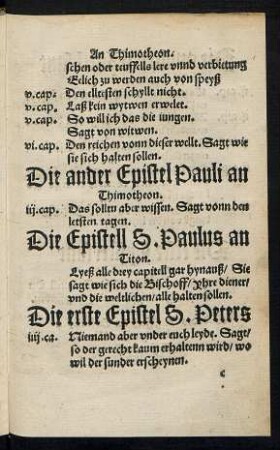 An Thimotheon.
schen oder teuffells lere vnnd verbietung
Eelich zu werden auch von speyß
v.cap. Den elltesten schyllt nicht.
v.cap. Laß kein wytwen erwelet.
v.cap. So will ich das die iungen.
Sagt von witwen.
vi.cap. Den reichen vonn dieser wellt. Sagt wie
sie sich halten sollen.
Die ander Epistel Pauli an
Thimotheon.
iij.cap. Das solltu aber wissen. Sagt vonn den
letsten tagen.
Die Epistell S. Paulus an
Titon.
Lyeß alle drey capitell gar hynauß/ Sie
sagt wie sich die Bischoff/ yhre diener/
vnd die weltlichen/ alle halten sollen.
Die erste Epistel S. Peters
iiij.ca. Niemand aber vnder euch leyde. Sagt/
so der gerecht kaum erhaltenn wird/ wo
wil der sunder erscheynen.
c